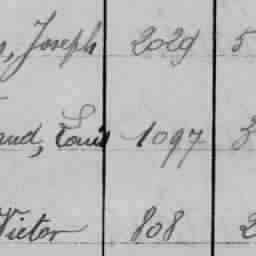 , Joseph 2029 5
aud, Louis 1097 3
Victor 808 2